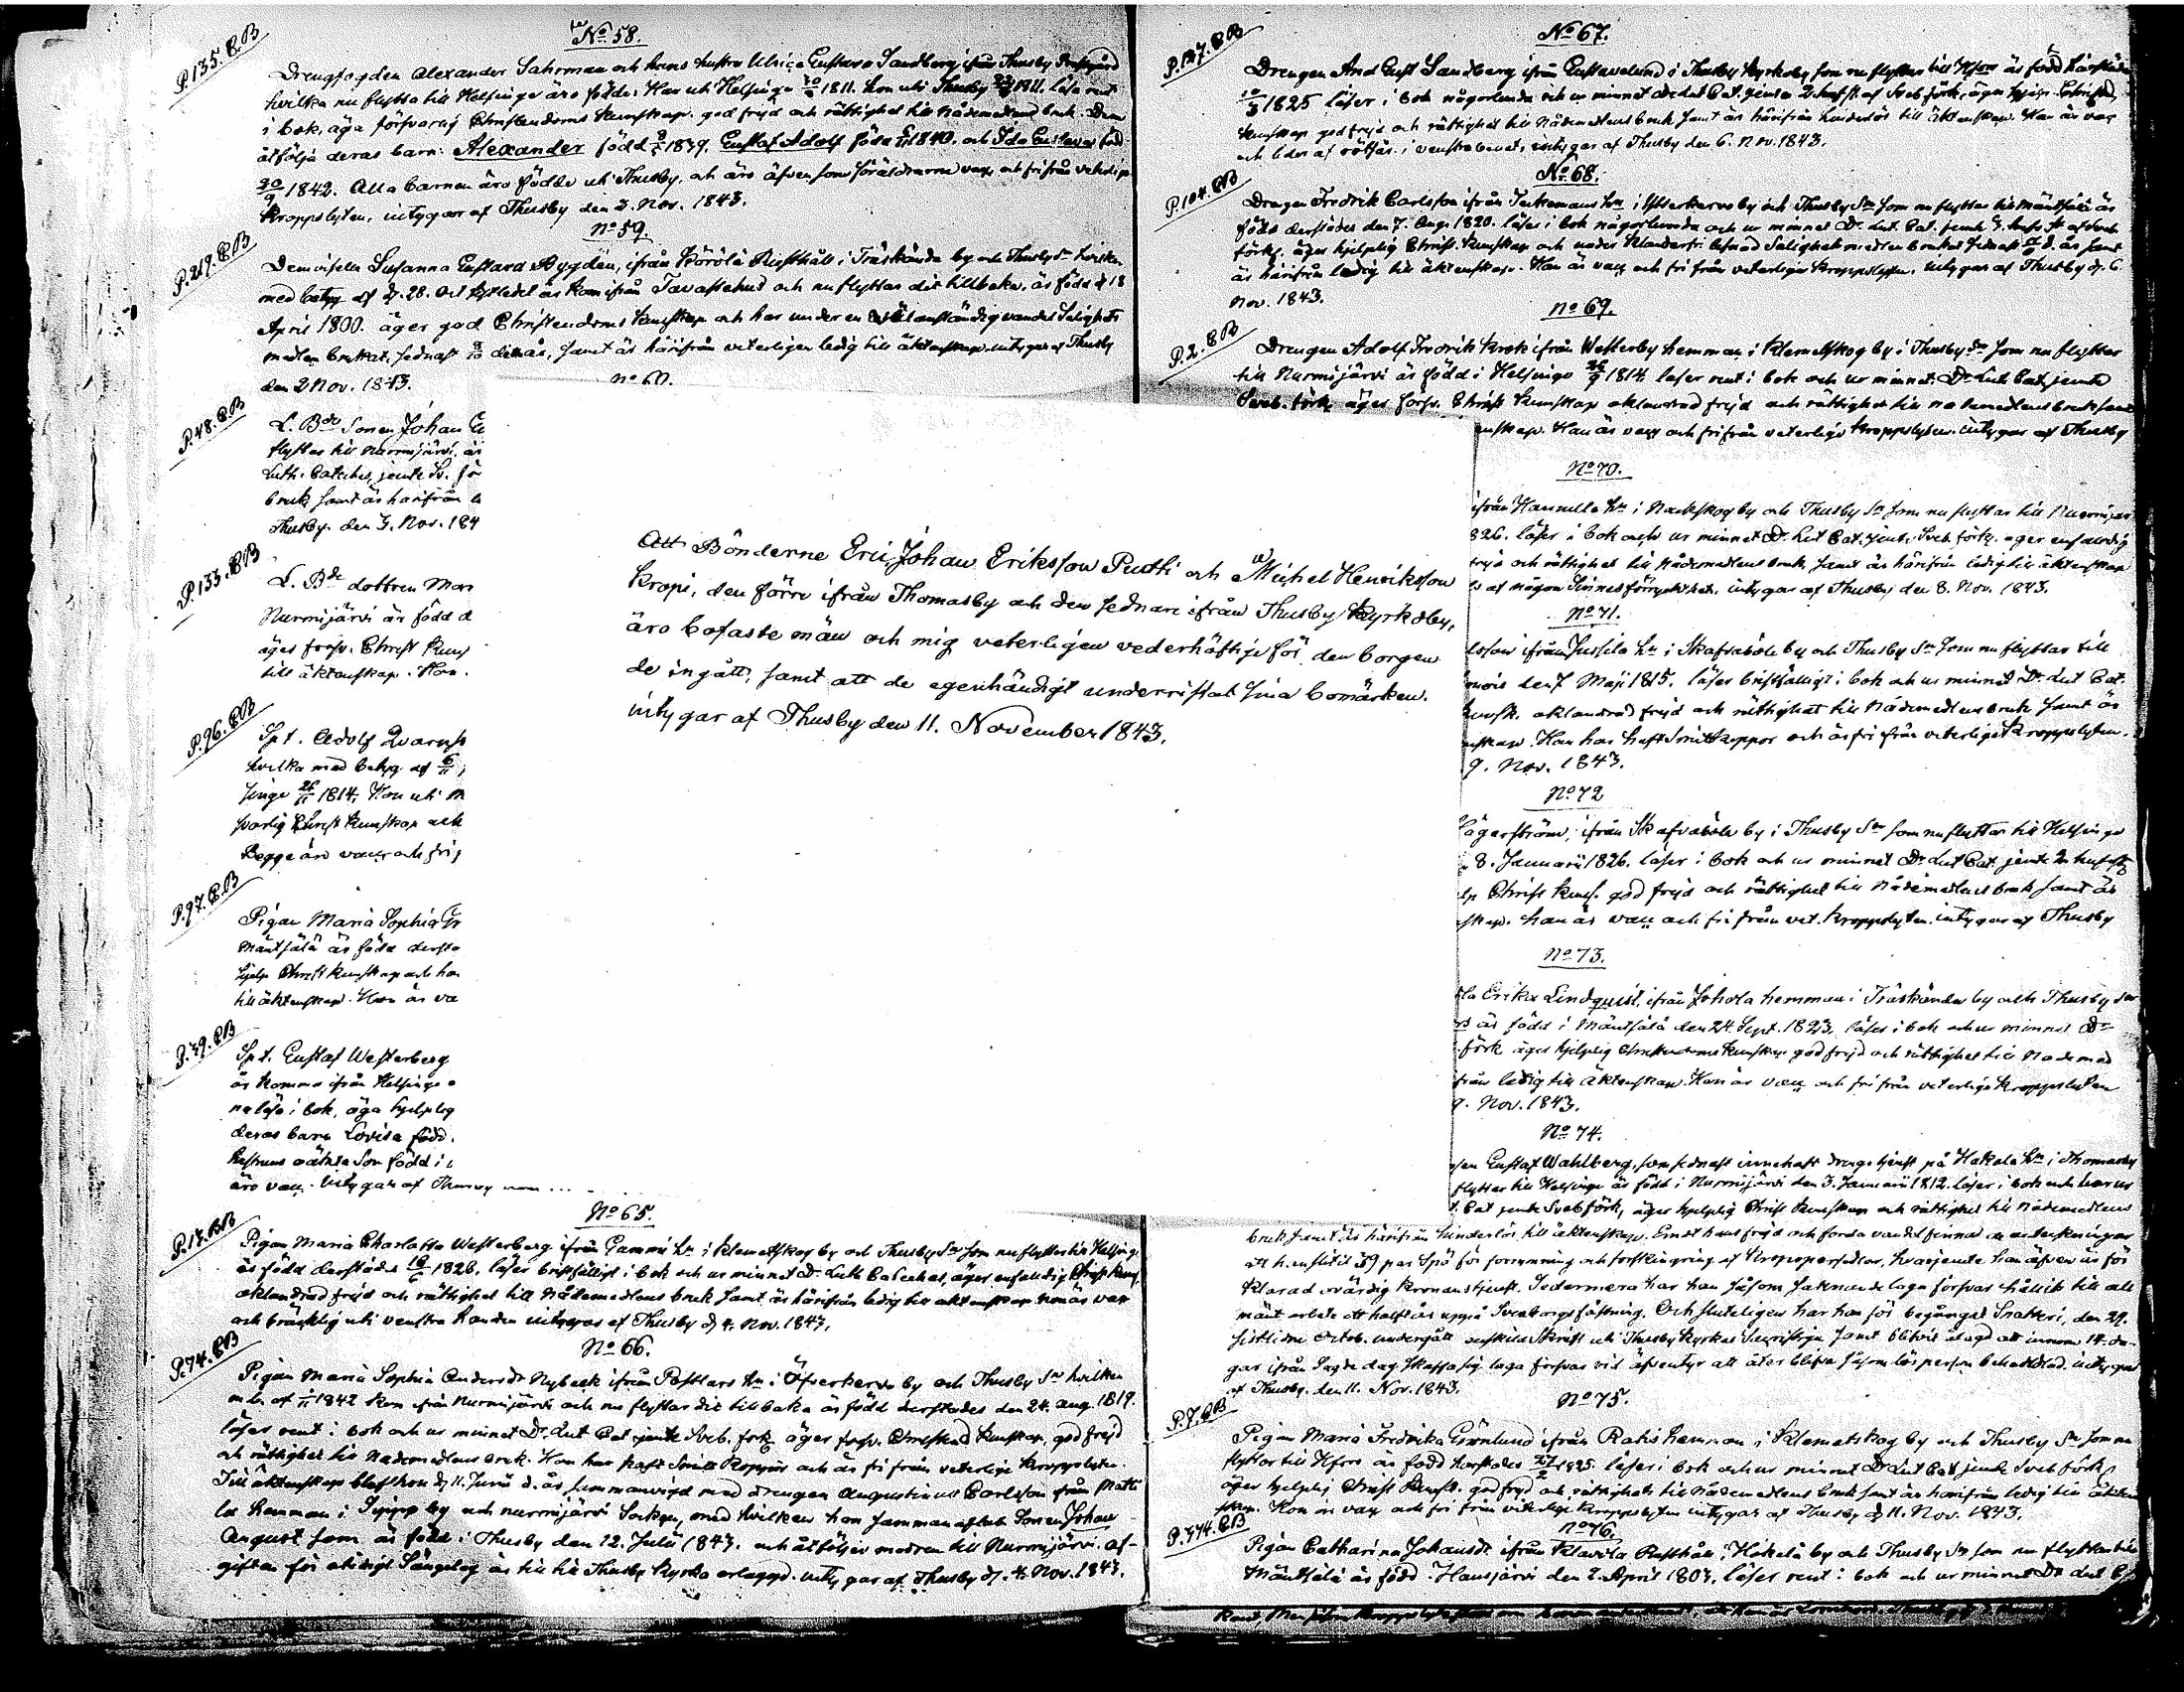 No 58.
P.135. C.B
Drengfogden Alexander Sahrman och hans hustru Ulrica Gustava Sandberg ifrån Thusby
hvilka nu flytta till Helsinge äro födde: Han uti Helsinge 1811. hon uti Thusby 1811. läsa rent
i bok, äga försvarlig Christendoms kunskap. god frejd och rättighet till Nådemedlens bruk. Dem
åtfölja deras barn: Alexander född 1839. Gustaf Adolf född 1840. och Ida Gustava född
1842. Alla barnen äro födde uti Thusby, och äro äfven som föräldrarne vacc. och fri från veterliga
kroppslyten, intygar af Thusby den 2. Nov. 1843.
No 59.
P.219. C.B
Demoiselle Susanna Gustava Nygdén, ifrån Rusthåll i Träskända by och Thusby Sn hvilken
med betyg af d. 28. Oct kom ifrån Tavastehus och nu flyttar dit tillbaka, är född d 18
April 1800. äger god Christendoms kunskap och har under en anständig vandel Salighets
medlen brukat, sednast detta år, samt är härifrån veterligen ledig till äktenskap. intygar af Thusby
den 2 Nov. 1843.
No 60.
P.48. C.B
L. Bde Sonen Johan
flyttar till Nurmijärvi, är
Luth. Catches, jemte Sv. för
bruk samt är härifrån
Thusby. den 3. Nov. 184
P.133. C.B
L. Bde dottren Mar
Nurmijärvi är född d
äger försv. Christ kuns
till äktenskap. Hon.
P.96. C.B
Spt. Adolf Qvarnst
hvilka med betyg af
singe 1814, Hon uti
svarlig Christ kunskap och
Begge äro vacc och fri
P.97. C.B
Pigan Maria Sophia Gr
Mäntsälä är född derst
hjelp Christ kunskap och ha
till äktenskap. Hon är va
P.39. C.B
Spt. Gustaf Westerberg
är komna ifrån Helsinge
na läsa i bok, äga hjelplig
deras barn Lovisa född.
hustruns oäkta Son född i
äro vacc. intygar af Thusby
No 65.
P.17. C.B
Pigan Maria Charlotta Westerberg ifrån Gammi Hn i Klemetskog by och Thusby Sn som nu flyttar till Helsinge
är född derstädes 1826. läser bristfälligt i bok och ur minnet Dr. Luth Catechas, äger enfaldig Christ kunsk.
oklandrad frejd och rättighet till Nådemedlens bruk samt är härifrån ledig till äktenskap. Hon är vacc
och bräcklig uti venstra handen intygas af Thusby d 4. Nov. 1843.
No 66.
P.74. C.B
Pigan Maria Sophia Andersdr Nybeck ifrån Postlars Hn i Öfverkervo by och Thusby Sn hvilken
m. b. af 1842 kom ifrån Nurmijärvi och nu flyttar dit tillbaka är född derstädes den 24. Aug. 1819.
läser rent i bok och ur minnet Dr. Lut Cat jemte Sveb. förk. äger försv. Christend kunskap, god frejd
och rättighet till Nådemedlens bruk. Hon har haft Smittkoppor och är fri från veterliga kroppslyten.
Till äktenskap blef hon d 11. Junii d. år sammanvigd med drengen Augustinus Carlsson från Matti
la hemman i by och Nurmijärvi Socken, med hvilken hon sammanaflat Sonen Johan
August som är född i Thusby den 12. Julii 1843. och åtföljer modren till Nurmijärvi. Af-
giften för otidigt Sängelag är till Thusby kyrka erlaggd. intygar af Thusby d. 4. Nov. 1843.
Att Bönderne Eric Johan Eriksson Putti och Michel Henriksson
Kropi, den förre ifrån Thomasby och den sednare ifrån Thusby Kyrkoby,
äro bofaste män och mig veterligen vederhäftige för den borgen
de ingått, samt att de egenhändigt underristat sina bomärken.
intygar af Thusby den 11. November 1843.
No 67.
P.127. C.B
Drengen And Gust Sandberg ifrån Gustavelund i Thusby Kyrkoby som nu flyttar till Hfors är född härstädes
1825 läser i bok någorlunda och ur minnet Lut Cat. jemte Sveb förk, äger hjelp. Christend
kunskap god frejd och rättighet till Nådemedlens bruk samt är härifrån hinderlös till äktenskap. Han är vac
och lider af i venstra benet, intygar af Thusby den 6. Nov. 1843.
No 68.
P.104. C.B
Drengen Fredrik Carlsson ifrån Hn i Ytterkervo by och Thusby Sn som nu flyttar till Mäntsälä är
född derstädes den 7. Aug. 1820. läser i bok någorlunda och ur minnet Dr. Lut. Cat. jemte
förk. äger hjelplig Christ. kunskap och under klanderfri lefnad Salighetsmedlen brukat sednast d. år samt
är härifrån ledig till äktenskap. Han är vacc och fri från veterliga kroppslyten. intygar af Thusby d. 6
Nov. 1843.
No 69.
P.2. C.B
Drengen Adolf Fredrik Krok ifrån Wetterby hemman i Klemetskog by i Thusby Sn som nu flyttar
till Nurmijärvi är född i Helsinge 1814 läser rent i bok och ur minnet Dr. Lut Cat jemte
Sveb. förk, äger försv. Christ kunskap oklandrad frejd och rättighet till nådemedlens bruk samt
enskap. Han är vacc och fri från veterliga kroppslyten. intygar af Thusby
No 70.
ifrån Hannulla Hn i Nackskog by och Thusby Sn som nu flyttar till Nurmijärvi
826. läser i bok och ur minnet Dr. Lut Cat. jemte Sveb förk. äger enfaldig
frejd och rättighet till Nådemedlens bruk samt är härifrån ledig till äktenskap
af någon Sinnesförryckthet, intygar af Thusby den 8. Nov. 1843.
No 71.
lsson ifrån Jussila Hn i Skafvaböle by och Thusby Sn som nu flyttar till
den 7 Maji 1815. läser bristfälligt i bok och ur minnet Dr. Lut Cat.
kunsk. oklandrad frejd och rättighet till Nådemedlens bruk samt är
nskap. Han har haft Smittkoppor och är fri ifrån veterliga kroppslyten.
9. Nov. 1843.
No 72
ägerström, ifrån Skafvaböle by i Thusby Sn som nu flyttar till Helsinge
8. Januarii 1826. läser i bok och ur minnet Dr. Lut Cat. jemte
lp Christ kuns. god frejd och rättighet till Nådemedlens bruk samt är
skap. han är vacc och fri från vet. kroppslyten. intygar af Thusby
No 73.
la Erika Lindquist, ifrån Johola hemman i Träskända by och Thusby Sn
är född i Mäntsälä den 24. Sept. 1823, läser i bok och ur minnet Dr
förk äger hjelplig Christendoms kunskap god frejd och rättighet till Nådemed
ifrån ledig till äktenskap. Hon är vacc och fri från veterliga kroppslyten
9. Nov. 1843.
No 74.
gen Gustaf Wahlberg, som sednast innehaft drengetjenst på Hakala Hn i Thomasby
flyttar till Helsinge är född i Nurmijärvi den 3. Januarii 1812. läser i bok och
t. Cat jemte Sveb förk, äger hjelplig Christ kunskap och rättighet till Nådemedlens
bruk samt är härifrån hinderlös till äktenskap. hans frejd och forda vandel finnas anteckningar
att han slitit 39 par Spö för försnillning och förskingring af hvarjemte han äfven är för
klarad ovärdig kronans tjenst. Sedermera har han såsom saknande laga försvar hållits till all
mänt arbete ett halft år uppå Sveaborgs fästning. Och sluteligen har han för begånget Snatteri, den 29.
sistledne Octob. undergått enskild Skrift uti Thusby Kyrkas Sacristia samt blifvit ålagd att innom 14. da-
gar ifrån Sagde dag skaffa sig laga försvar vid äfventyr att åter blifva såsom lös person behandlad. intygar
af Thusby. den 11. Nov. 1843.
No 75.
P.7. C.B
Pigan Maria Fredrika Grönlund ifrån Rakis hemman i Klemetskog by och Thusby Sn som nu
flyttar till Hfors är född härstädes 1825. läser i bok och ur minnet Dr Lut Cat jemte Sveb förk
äger hjelplig Christ kunsk. god frejd och rättighet till Nådemedlens bruk samt är härifrån ledig till äkten
skap. Hon är vacc och fri från veterliga kroppslyten intygar af Thusby d 11. Nov. 1843.
No 76.
P.374. C.B
Pigan Catharina Johansdr ifrån Klavila Rusthåll i Hökelä by och Thusby Sn som nu flyttar till
Mäntsälä är född i Hausjärvi den 2. April 1803, läser rent i bok och ur minnet Dr Lut